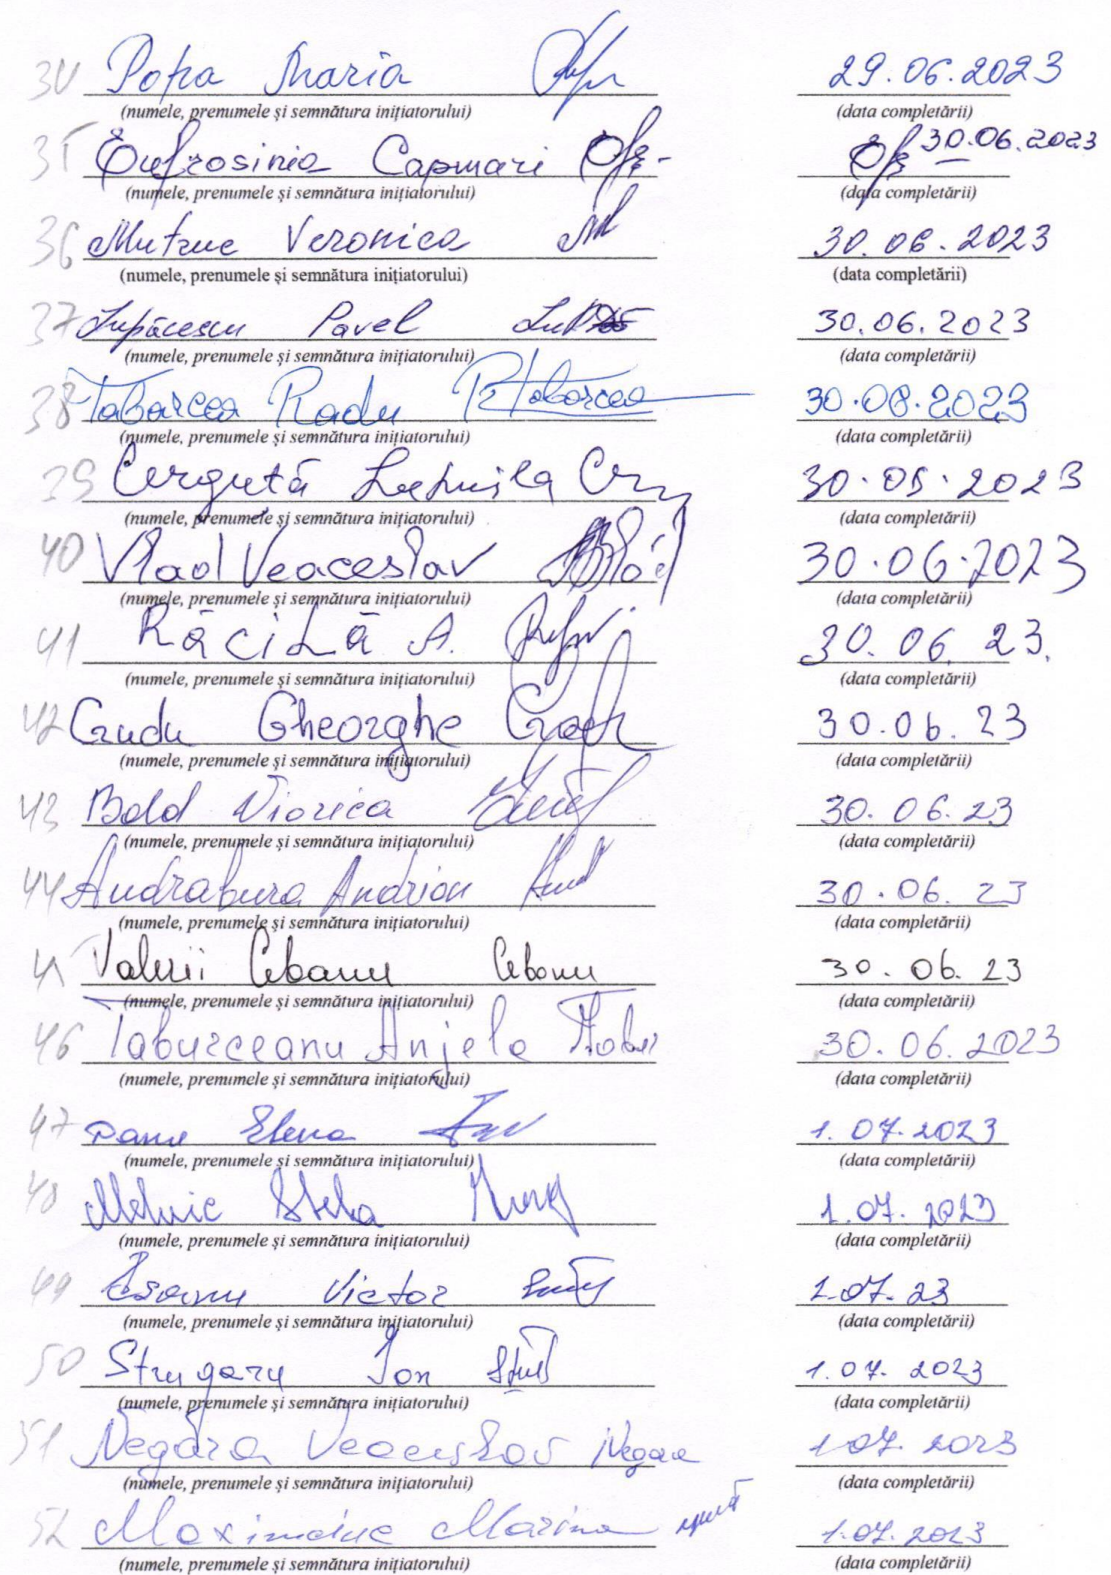 34 Popa Maria 29.06.2023
(numele, prenumele și semnătura inițiatorului) (data completării)
35 Eufrosinia Capmari 30.06.2023
(numele, prenumele și semnătura inițiatorului) (data completării)
36 Mutruc Veronica 30.06.2023
(numele, prenumele și semnătura inițiatorului) (data completării)
37 Lupăcescu Pavel 30.06.2023
(numele, prenumele și semnătura inițiatorului) (data completării)
38 Tabarcea Radu R Tabarcea 30.06.2023
(numele, prenumele și semnătura inițiatorului) (data completării)
39 Cerguță Ludmila 30.06.2023
(numele, prenumele și semnătura inițiatorului) (data completării)
40 Vlad Veaceslav 30.06.2023
(numele, prenumele și semnătura inițiatorului) (data completării)
41 Răcilă A. 30.06.23.
(numele, prenumele și semnătura inițiatorului) (data completării)
42 Crudu Gheorghe 30.06.23
(numele, prenumele și semnătura inițiatorului) (data completării)
43 Bold Viorica 30.06.23
(numele, prenumele și semnătura inițiatorului) (data completării)
44 Andrabura Andrian 30.06.23
(numele, prenumele și semnătura inițiatorului) (data completării)
45 Valerii Cebanu Cebanu 30.06.23
(numele, prenumele și semnătura inițiatorului) (data completării)
46 Taburceanu Anjela 30.06.2023
(numele, prenumele și semnătura inițiatorului) (data completării)
47 Elena 1.07.2023
(numele, prenumele și semnătura inițiatorului) (data completării)
48 Melnic Stela 1.07.2023
(numele, prenumele și semnătura inițiatorului) (data completării)
49 Esanu Victor 1.07.23
(numele, prenumele și semnătura inițiatorului) (data completării)
50 Strugaru Ion 1.07.2023
(numele, prenumele și semnătura inițiatorului) (data completării)
51 Negara Veaceslav Negara 1.07.2023
(numele, prenumele și semnătura inițiatorului) (data completării)
52 Marina 1.07.2023
(numele, prenumele și semnătura inițiatorului) (data completării)